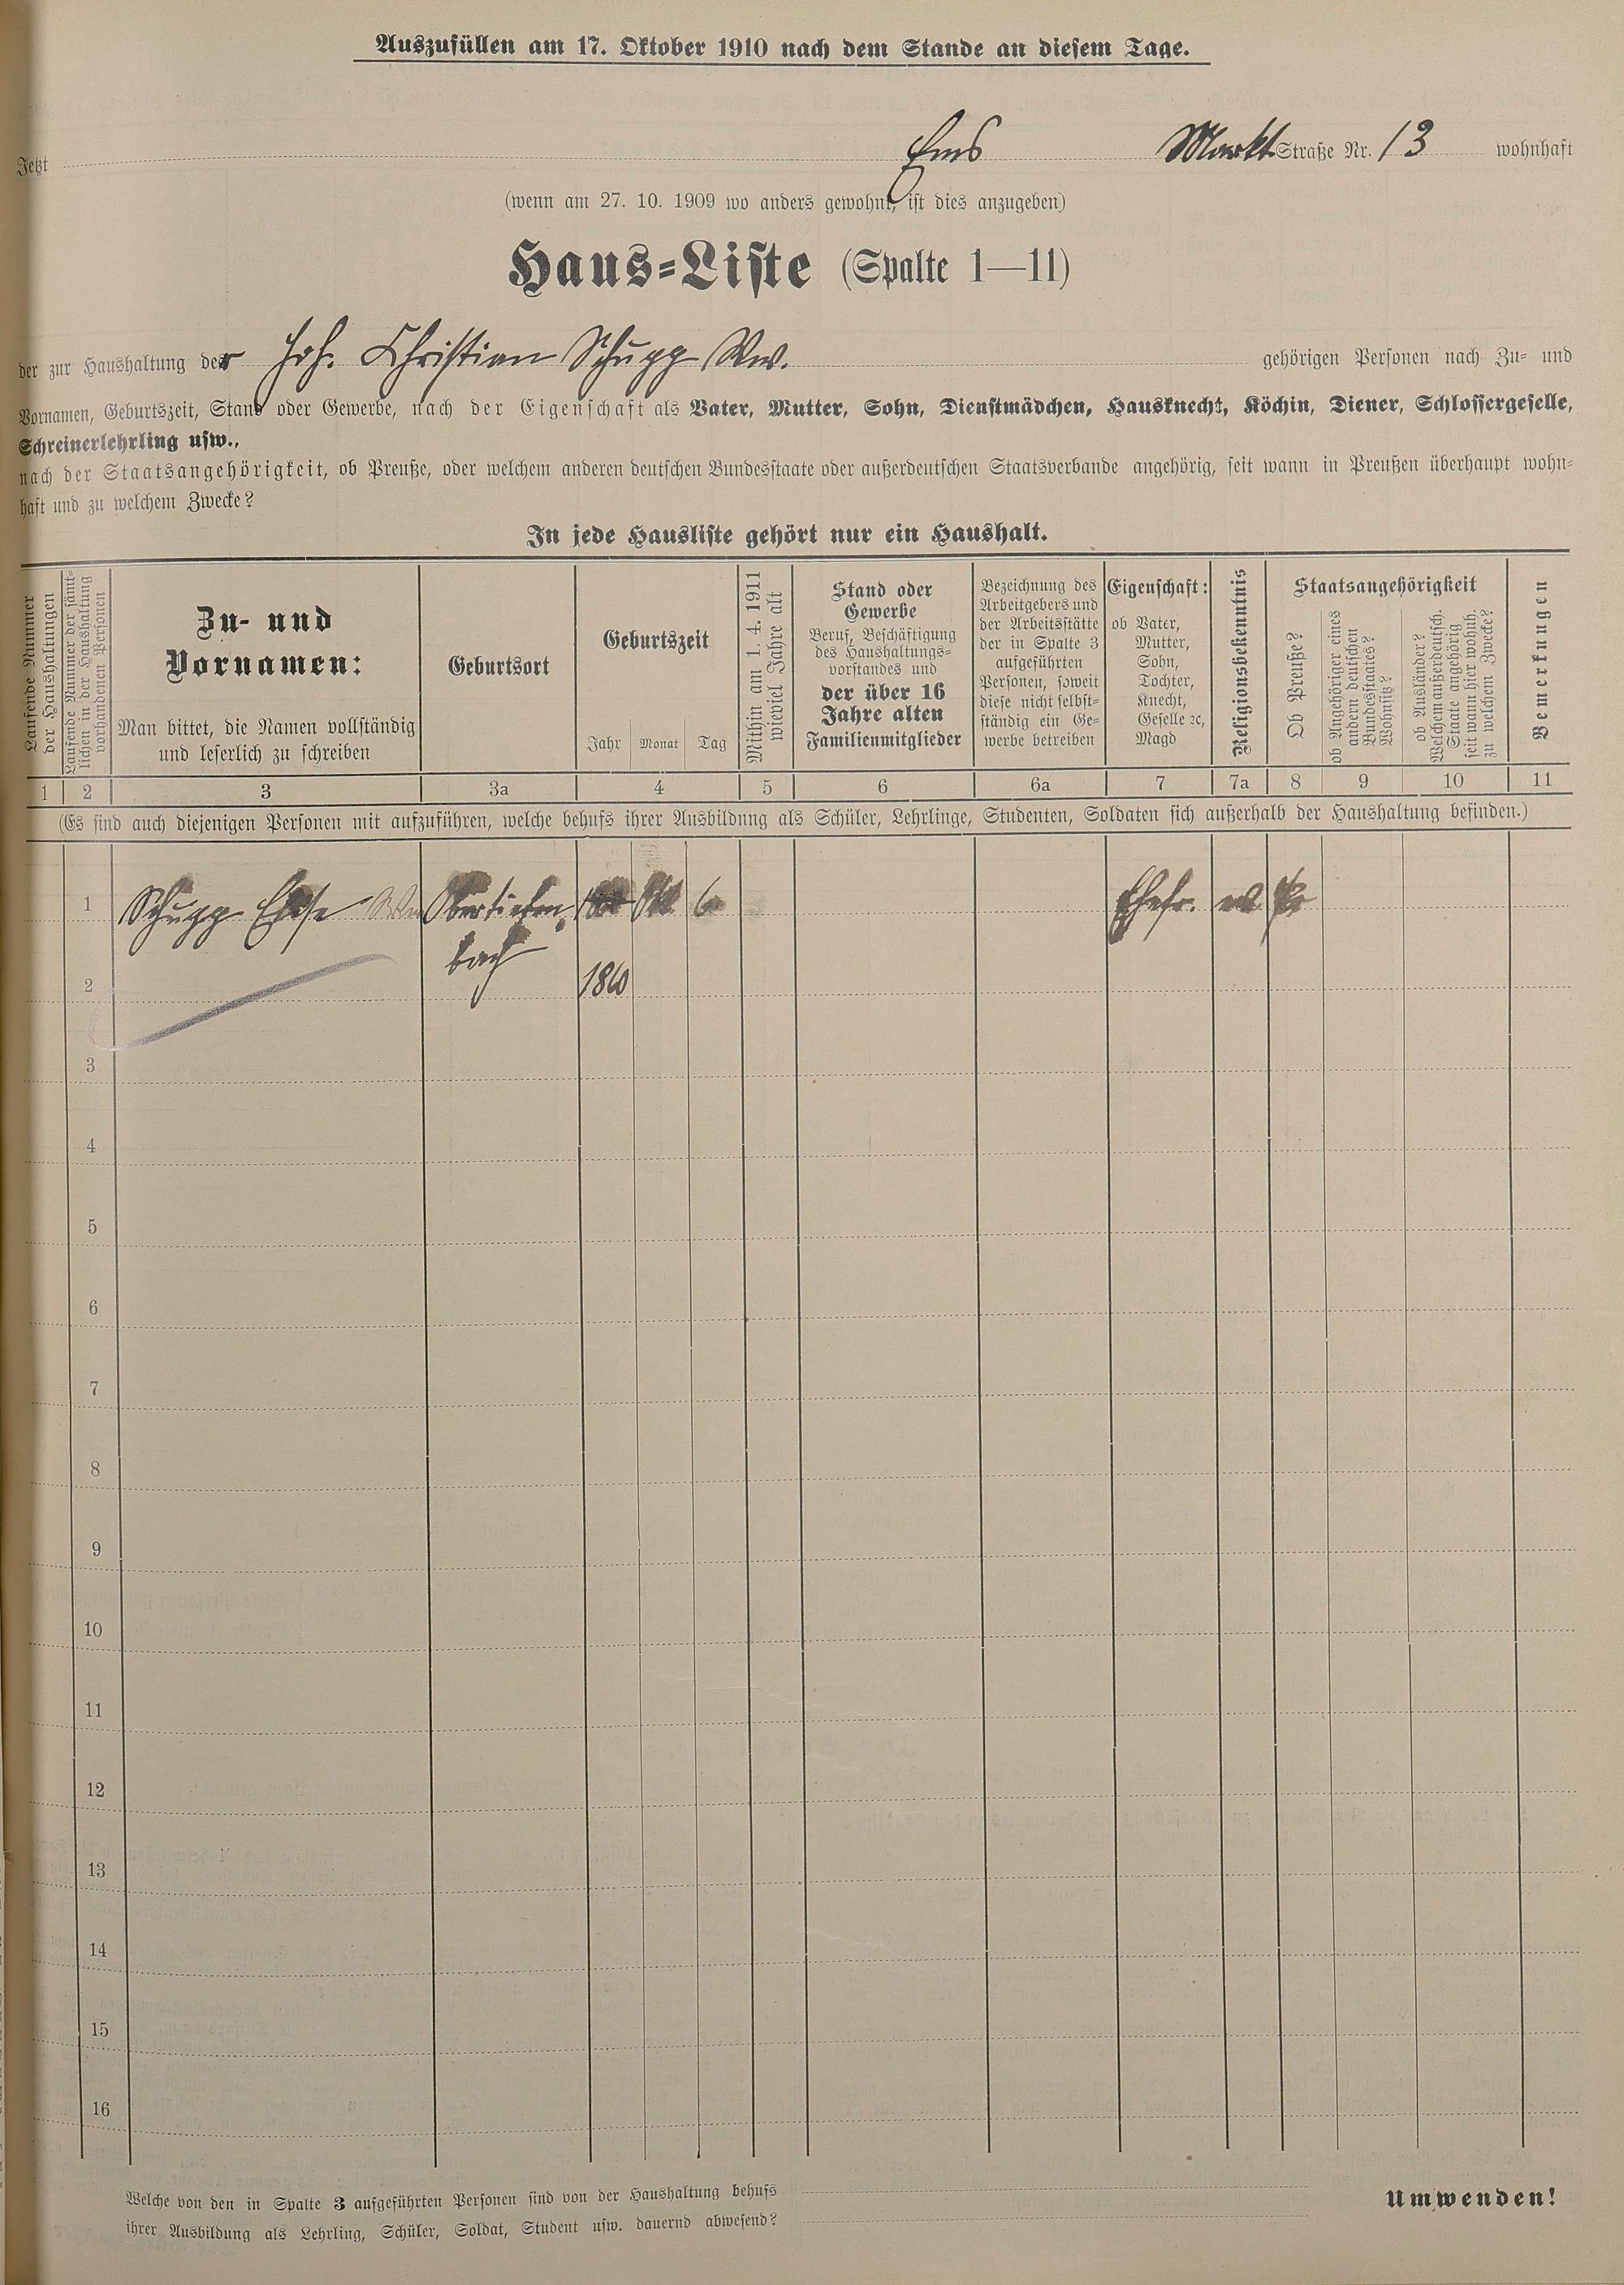 Auszufüllen am 17. Oktober 1910 nach dem Stande an diesem Tage.
Jetzt Ems Markt Straße Nr. 13 wohnhaft
(wenn am 27. 10. 1909 wo anders gewohnt, ist dies anzugeben)
Haus-Liste (Spalte 1—11)
der zur Haushaltung der Joh. Christian Schupp Ww. gehörigen Personen nach Zu- und
Vornamen, Geburtszeit, Stand oder Gewerbe, nach der Eigenschaft als Vater, Mutter, Sohn, Dienstmädchen, Hausknecht, Köchin, Diener, Schlossergeselle,
Schreinerlehrling usw.,
nach der Staatsangehörigkeit, ob Preuße, oder welchem anderen deutschen Bundesstaate oder außerdeutschen Staatsverbande angehörig, seit wann in Preußen überhaupt wohn-
haft und zu welchem Zwecke?
In jede Hausliste gehört nur ein Haushalt.
Laufende Nummer
der Haushaltungen
Laufende Nummer der sämt-
lichen in der Haushaltung
vorhandenen Personen
Zu- und
Vornamen:
Man bittet, die Namen vollständig
und leserlich zu schreiben
Geburtsort
Geburtszeit
Jahr Monat Tag
Mithin am 1. 4. 1911
wieviel Jahre alt
Stand oder
Gewerbe
Beruf, Beschäftigung
des Haushaltungs-
vorstandes und
der über 16
Jahre alten
Familienmitglieder
Bezeichnung des
Arbeitgebers und
der Arbeitsstätte
der in Spalte 3
aufgeführten
Personen, soweit
diese nicht selbst-
ständig ein Ge-
werbe betreiben
Eigenschaft:
ob Vater,
Mutter,
Sohn,
Tochter,
Knecht,
Geselle ꝛc,
Magd
Religionsbekenntnis
Staatsangehörigkeit
Ob Preuße?
ob Angehöriger eines
andern deutschen
Bundesstaates?
Wohnsitz?
ob Ausländer?
Welchem außerdeutsch.
Staate angehörig
seit wann hier wohnh.
zu welchem Zwecke?
Bemerkungen
1 2 3 3a 4 5 6 6a 7 7a 8 9 10 11
(Es sind auch diejenigen Personen mit aufzuführen, welche behufs ihrer Ausbildung als Schüler, Lehrlinge, Studenten, Soldaten sich außerhalb der Haushaltung befinden.)
1 Schupp Obertiefen- 6 Ehefr. Pr
bach
2 1860
3
4
5
6
7
8
9
10
11
12
13
14
15
16
Welche von den in Spalte 3 aufgeführten Personen sind von der Haushaltung behufs
ihrer Ausbildung als Lehrling, Schüler, Soldat, Student usw. dauernd abwesend?
Umwenden!